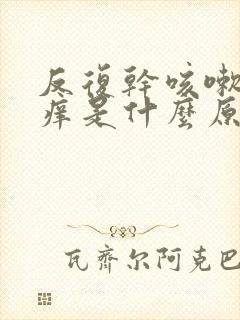 反復幹咳嗽
癢是什麼原
瓦齊尔阿克巴